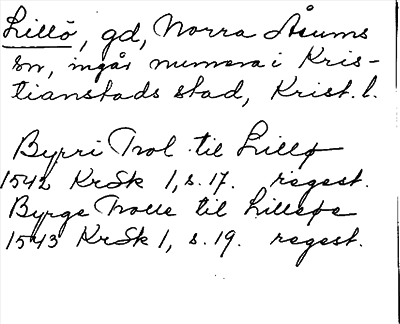 Lillö, gd, Norra Åsums
sn, ingår numera i Kris-
tianstads stad, Krist. l.
Byrri Trol til Lillø
1542 KrSk 1, s. 17. regest.
Byrge Trolle til Lilløe
1543 KrSk 1, s. 19. regest.